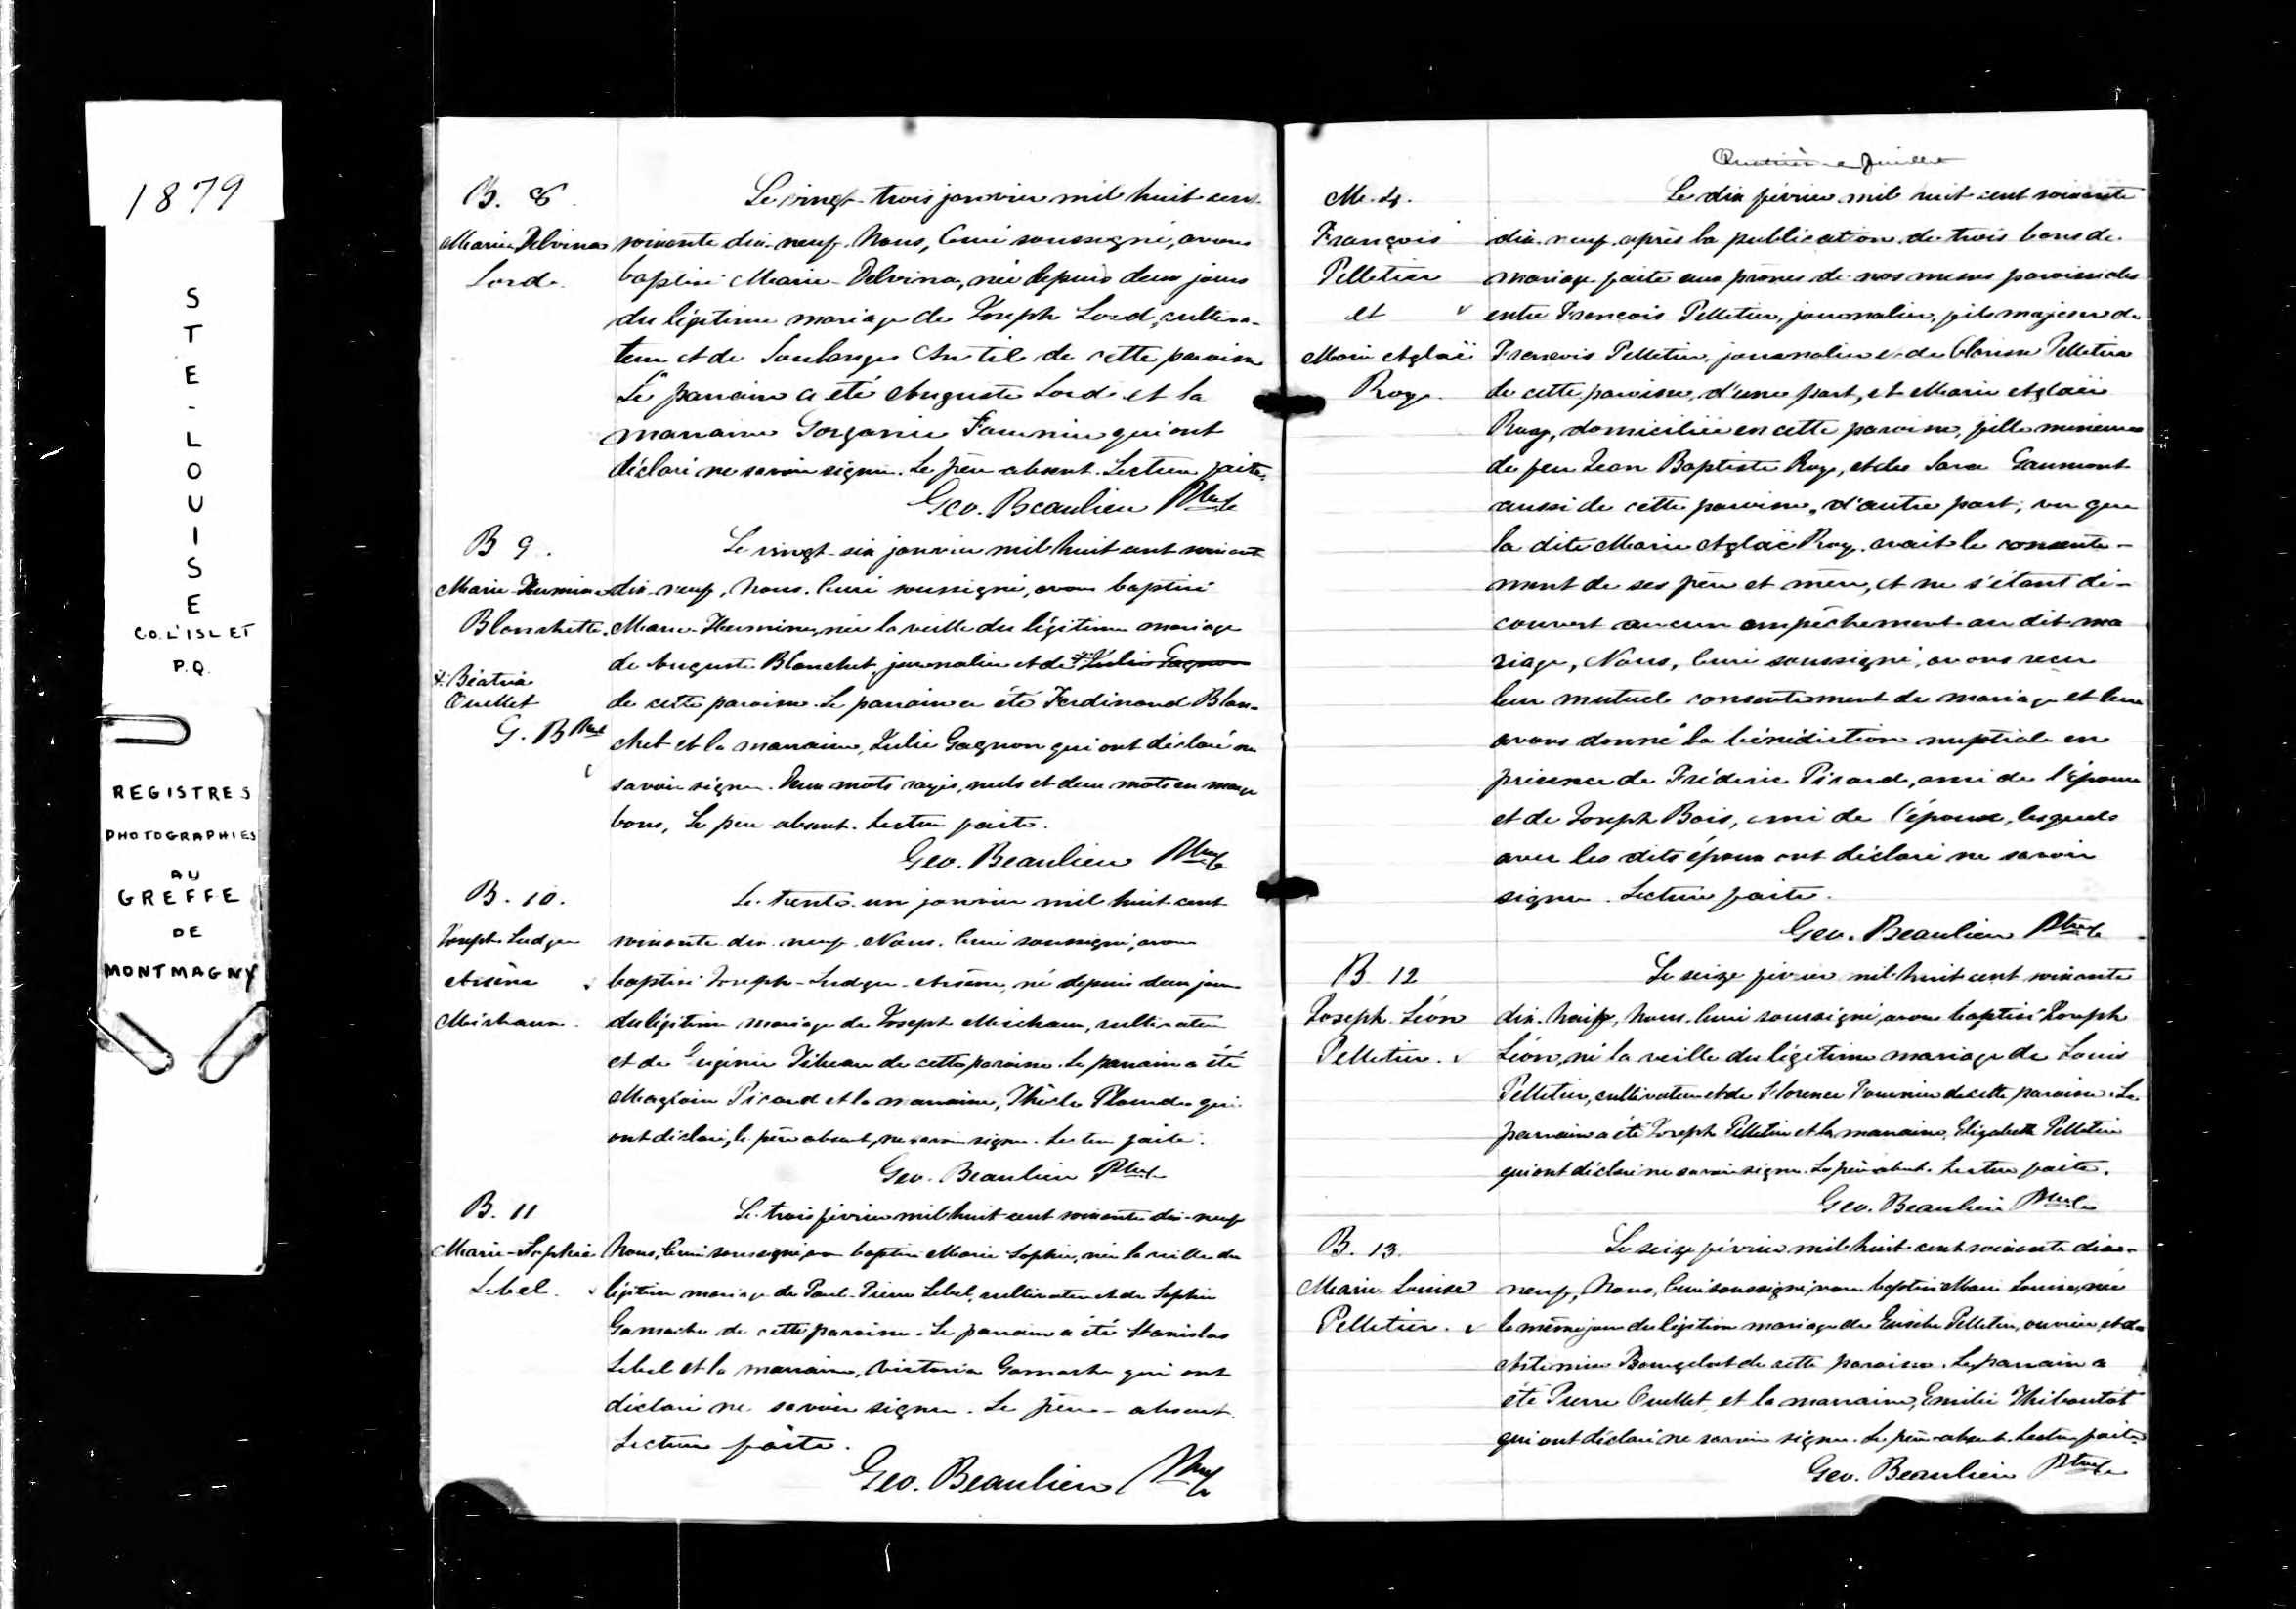 1879
STE-LOUISE
CO. L'ISLET
P.Q.
REGISTRES
PHOTOGRAPHIES
AU
GREFFE
DE
MONTMAGNY
B. 8.
Marie Delvina
Lord.
Le vingt-trois janvier mil huit cent
soixante dix-neuf. Nous, Curé soussigné, avons
baptisé Marie-Delvina, née depuis deux jours
du légitime mariage de Joseph Lord, cultiva-
teur et de Soulanges Anctil de cette paroisse
Le parrain a été Auguste Lord et la
marraine Fournier qui ont
déclaré ne savoir signer. Le père absent. Lecture faite.
Geo. Beaulieu Ptre
B 9.
Marie-Hermine
Blanchette.
+ Béatrix
Ouellet
G. B Ptre
Le vingt-six janvier mil huit cent soixante
dix-neuf, Nous, Curé soussigné, avons baptisé
Marie-Hermine, née la veille du légitime mariage
de Auguste Blanchet, journalier et de + Julie Gagnon
de cette paroisse. Le parrain a été Ferdinand Blan-
chet et la marraine, Julie Gagnon qui ont déclaré ne
savoir signer. Deux mots rayés, nuls et deux mots en marge
bons, Le père absent. Lecture faite.
Geo. Beaulieu Ptre
B. 10.
Joseph Ludger
Arsène
Michaum.
Le trente-un janvier mil huit cent
soixante-dix-neuf. Nous, Curé soussigné, avons
baptisé Joseph-Ludger-Arsène, né depuis deux jours
du légitime mariage de Joseph Michaum, cultivateur
et de Eugénie de cette paroisse. Le parrain a été
Magloire Picard et la marraine, Thècle Plourde qui
ont déclaré, le père absent, ne savoir signer. Lecture faite.
Geo. Beaulieu Ptre
B. 11
Marie-Sophie
Lebel.
Le trois février mil huit cent soixante-dix-neuf
Nous, Curé soussigné, avons baptisé Marie Sophie, née la veille du
légitime mariage de Paul-Pierre Lebel, cultivateur et de Sophie
Gamache de cette paroisse. Le parrain a été Stanislas
Lebel et la marraine, Victoria Gamache qui ont
déclaré ne savoir signer. Le père absent.
Lecture faite.
Geo. Beaulieu Ptre
Quatrième feuillet
M. 4.
François
Pelletier
et
Marie Aglaë
Roy.
Le dix février mil huit cent soixante
dix-neuf, après la publication de trois bans de
mariage faite aux prônes de nos messes paroissiales
entre François Pelletier, journalier, fils majeur de
François Pelletier, journalier et de Clarisse Pelletier
de cette paroisse, d'une part, et Marie Aglaë
Roy, domiciliée en cette paroisse, fille mineure
de feu Jean Baptiste Roy, et de Sara Gaumont
aussi de cette paroisse, d'autre part; vu que
la dite Marie Aglaë Roy, avait le consente-
ment de ses père et mère, et ne s'étant dé-
couvert aucun empêchement au dit ma
riage, Nous, Curé soussigné, avons reçu
leur mutuel consentement de mariage et leur
avons donné la bénédiction nuptiale en
présence de Fréderic Picard, ami de l'époux
et de Joseph Bois, ami de l'épouse, lesquels
avec les dits époux ont déclaré ne savoir
signer. Lecture faite.
Geo. Beaulieu Ptre
B. 12
Joseph Léon
Pelletier.
Le seize février mil huit cent soixante
dix-neuf, Nous, Curé soussigné, avons baptisé Joseph
Léon, né la veille du légitime mariage de Louis
Pelletier, cultivateur et de Florence Fournier de cette paroisse. Le
parrain a été Joseph Pelletier et la marraine, Elizabeth Pelletier
qui ont déclaré ne savoir signer. Le père absent. Lecture faite.
Geo. Beaulieu Ptre
B. 13.
Marie Louise
Pelletier.
Le seize février mil huit cent soixante dix-
neuf, Nous, Curé soussigné, avons baptisé Marie Louise, née
le même jour du légitime mariage de Eusèbe Pelletier, ouvrier, et de
Artémise Bourgelat de cette paroisse. Le parrain a
été Pierre Ouellet et la marraine, Emilie Thiboutôt
qui ont déclaré ne savoir signer. Le père absent. Lecture faite.
Geo. Beaulieu Ptre